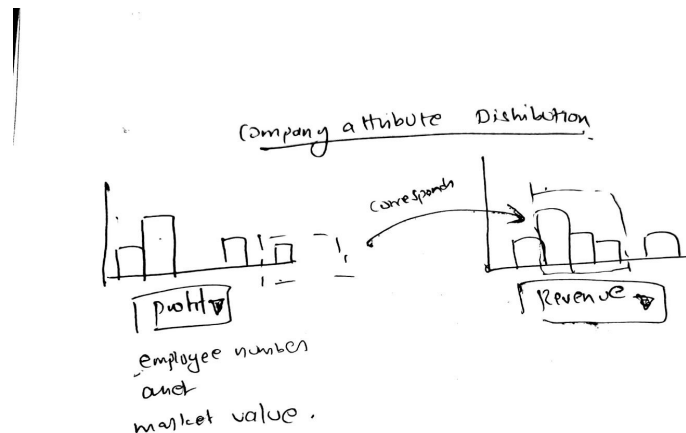 Company attribute Distribution
corresponds
profit
Revenue
employee number
and
market value.